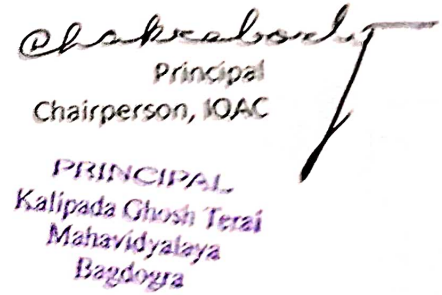 Chakraborty
Principal
Chairperson, IQAC
PRINCIPAL
Kalipada Ghosh Terai
Mahavidyalaya
Bagdogra